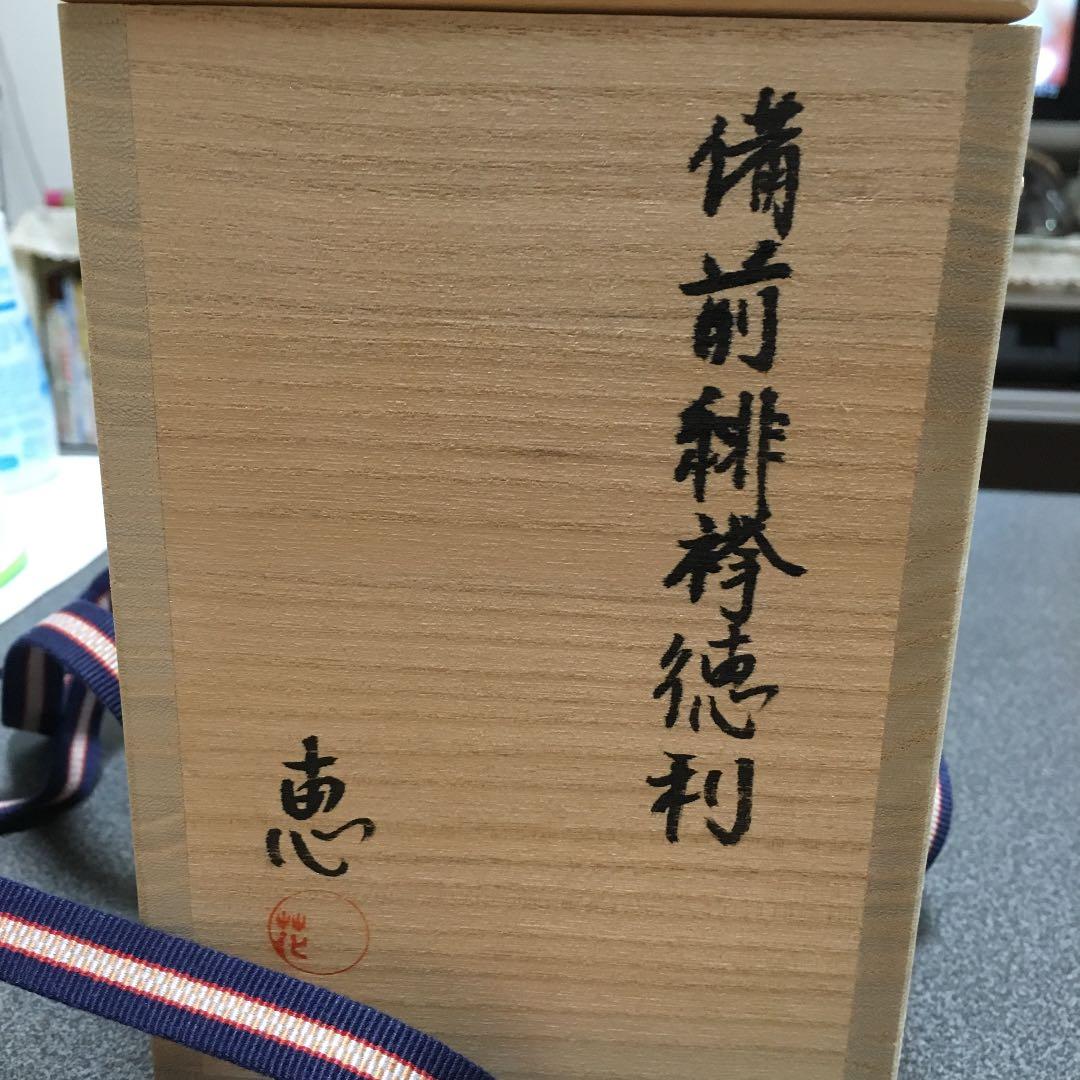 備前緋襷徳利
恵
花